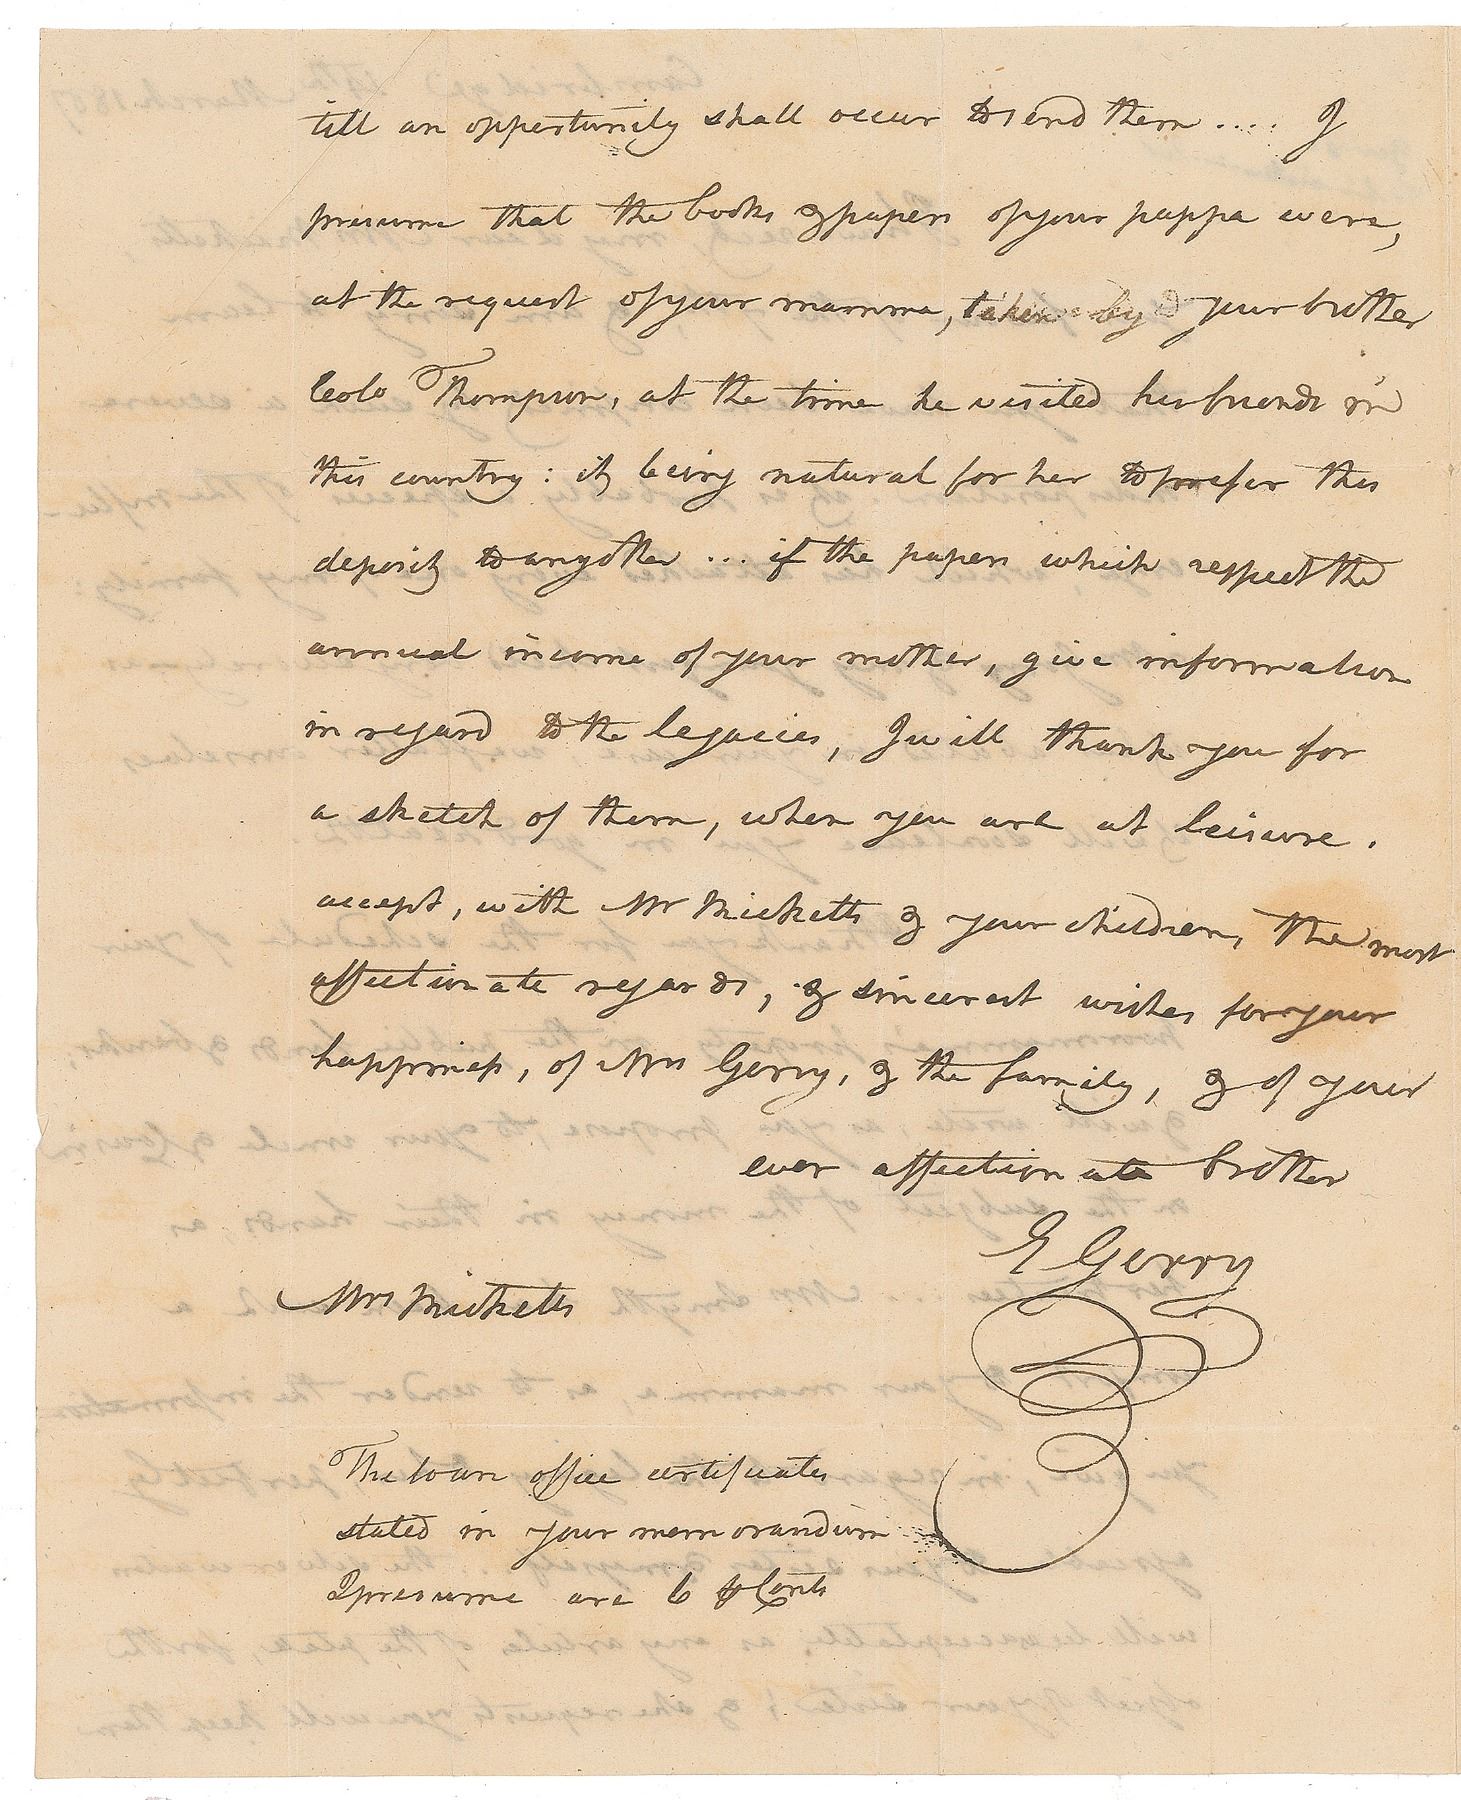 till an opportunity shall occur to send them .... I
presume that the books & papers of your pappa were,
at the request of your mamma, taken by your brother
Colo Thompson, at the time he visited his friends in
this country: it being natural for her to prefer this
deposit to any other ... if the papers which respect the
annual income of your mother, give information
in regard to the legacies, I will thank you for
a sketch of them, when you are at leisure.
accept, with Mr Ricketts & your children, the most
affectionate regards, & sincerest wishes for your
happiness, of Mrs Gerry, & the family, & of your
ever affectionate brother
E Gerry
Mrs Ricketts
The loan office certificates
stated in your memorandum
I presume are 6 P Cents